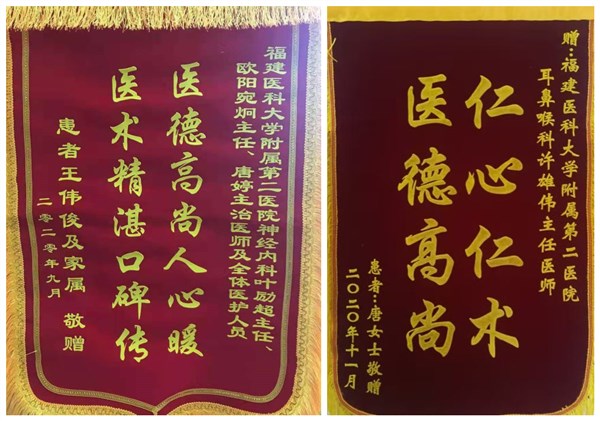 福建医科大学附属第二医院神经内科叶励超主任、
欧阳宛炯主任、唐婷主治医师及全体医护人员
医德高尚人心暖
医术精湛口碑传
患者王伟俊及家属 敬赠
二零二零年九月
赠:福建医科大学附属第二医院
耳鼻喉科许雄伟主任医师
仁心仁术
医德高尚
患者:唐女士敬赠
二〇二〇年十一月